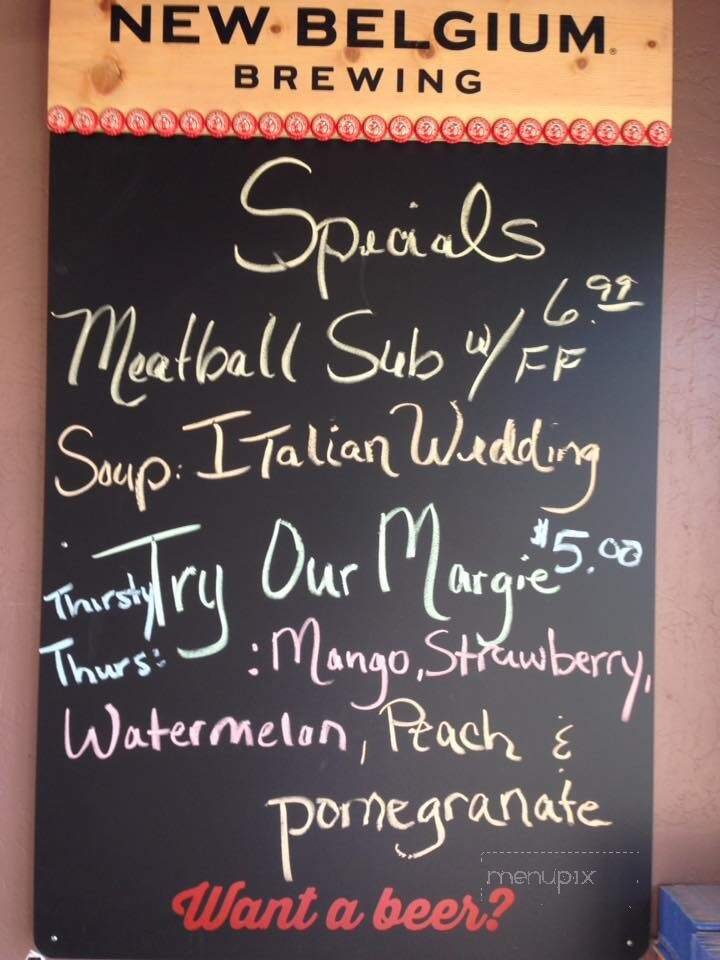 NEW BELGIUM
BREWING
Specials
Meatball Sub w/ FF 6.99
Soup: Italian Wedding
Try Our Margie $5.00
Thirsty
Thurs:
: Mango, Strawberry,
Watermelon, Peach &
pomegranate
menupix
Want a beer?